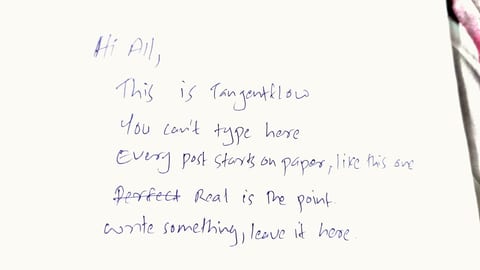 Hi All,
This is Tangentflow
You can't type here
Every post starts on paper, like this one
Perfect Real is the point.
Write something, leave it here.